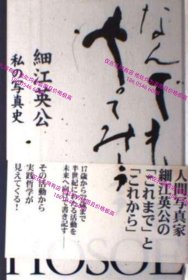 なんでも
やってみよう
細江英公
私の写真史
人間写真家
細江英公の
「これまで」と
「これから」
17歳から
半世紀にわたる活動を
未来へ向けて書き記す
その活動から
実践哲学が
見えてくる!
HOSOE